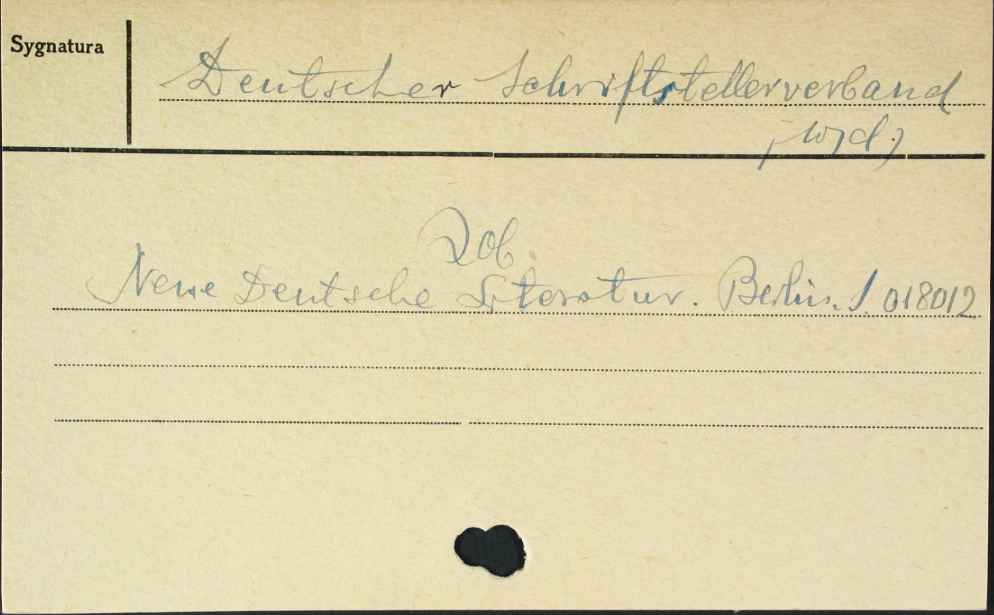 Sygnatura
Deutscher Schriftstellerverband
(wyd.)
Zob.
Neue Deutsche Literatur. Berlin. S. 018012